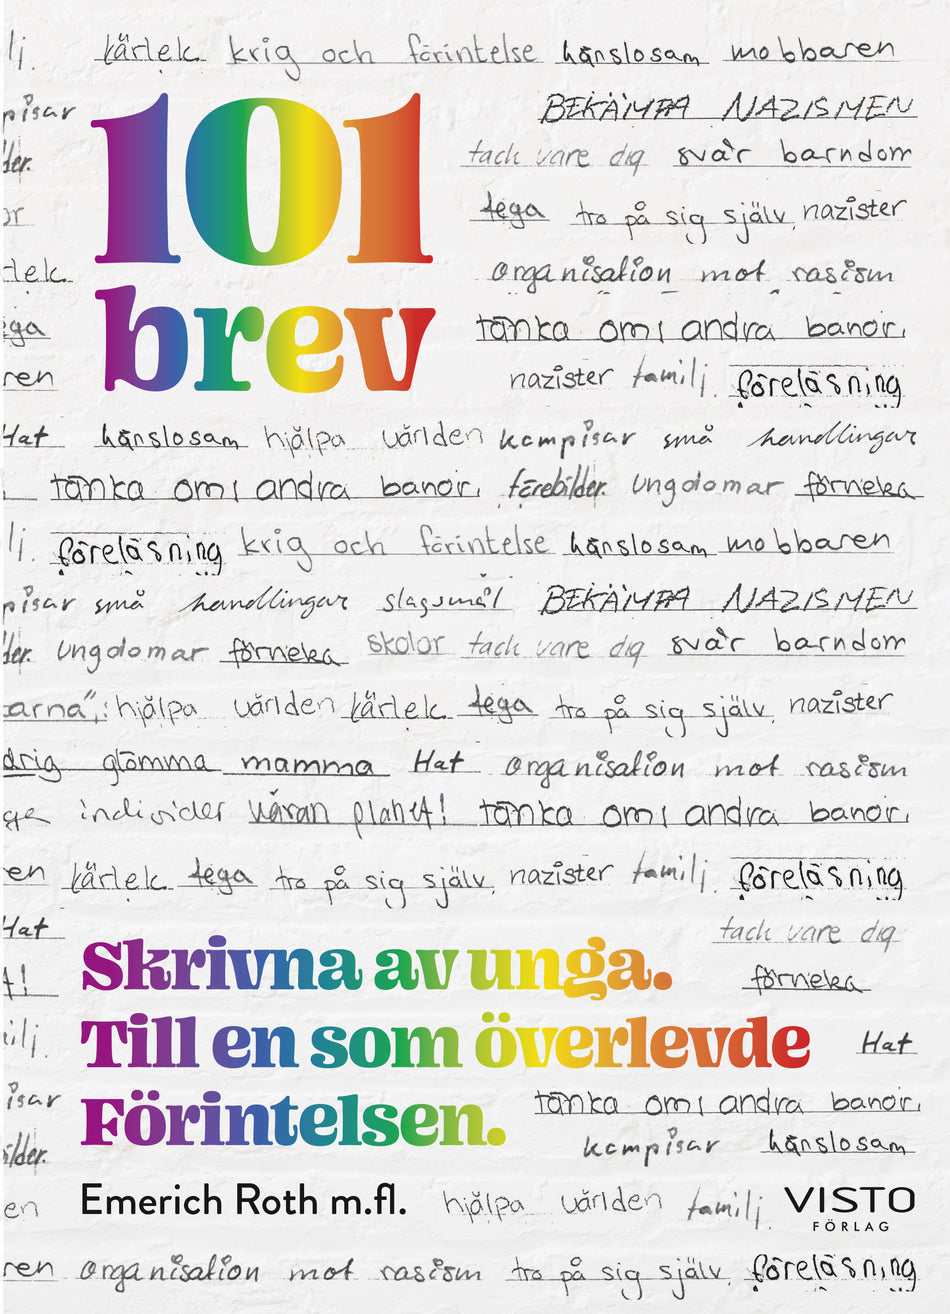 lj. kärlek krig och förintelse hänslosam mobbaren
pisar BEKÄMPA NAZISMEN
101
der. tack vare dig svår barndom
or fega tro på sig själv nazister
rlek organisation mot rasism
brev
ega tänka om i andra banor.
ren nazister familj. föreläsning
Hat hänslosam hjälpa världen kompisar små handlingar
tänka om i andra banor. förebilder. Ungdomar förneka
lj. föreläsning krig och förintelse hänslosam mobbaren
pisar små handlingar slagsmål BEKÄMPA NAZISMEN
der. Ungdomar förneka skolor tack vare dig svår barndom
arna". hjälpa världen kärlek fega tro på sig själv nazister
drig glömma mamma Hat organisation mot rasism
individer våran planet! tänka om i andra banor.
en kärlek fega tro på sig själv nazister familj. föreläsning
Hat tack vare dig
Skrivna av unga.
t! förneka
Till en som överlevde
ilj. Hat
Förintelsen.
isar tänka om i andra banor.
ilder. kompisar hänslosam
Emerich Roth m.fl.
en hjälpa världen familj. VISTO
FÖRLAG
ren organisation mot rasism tro på sig själv föreläsning